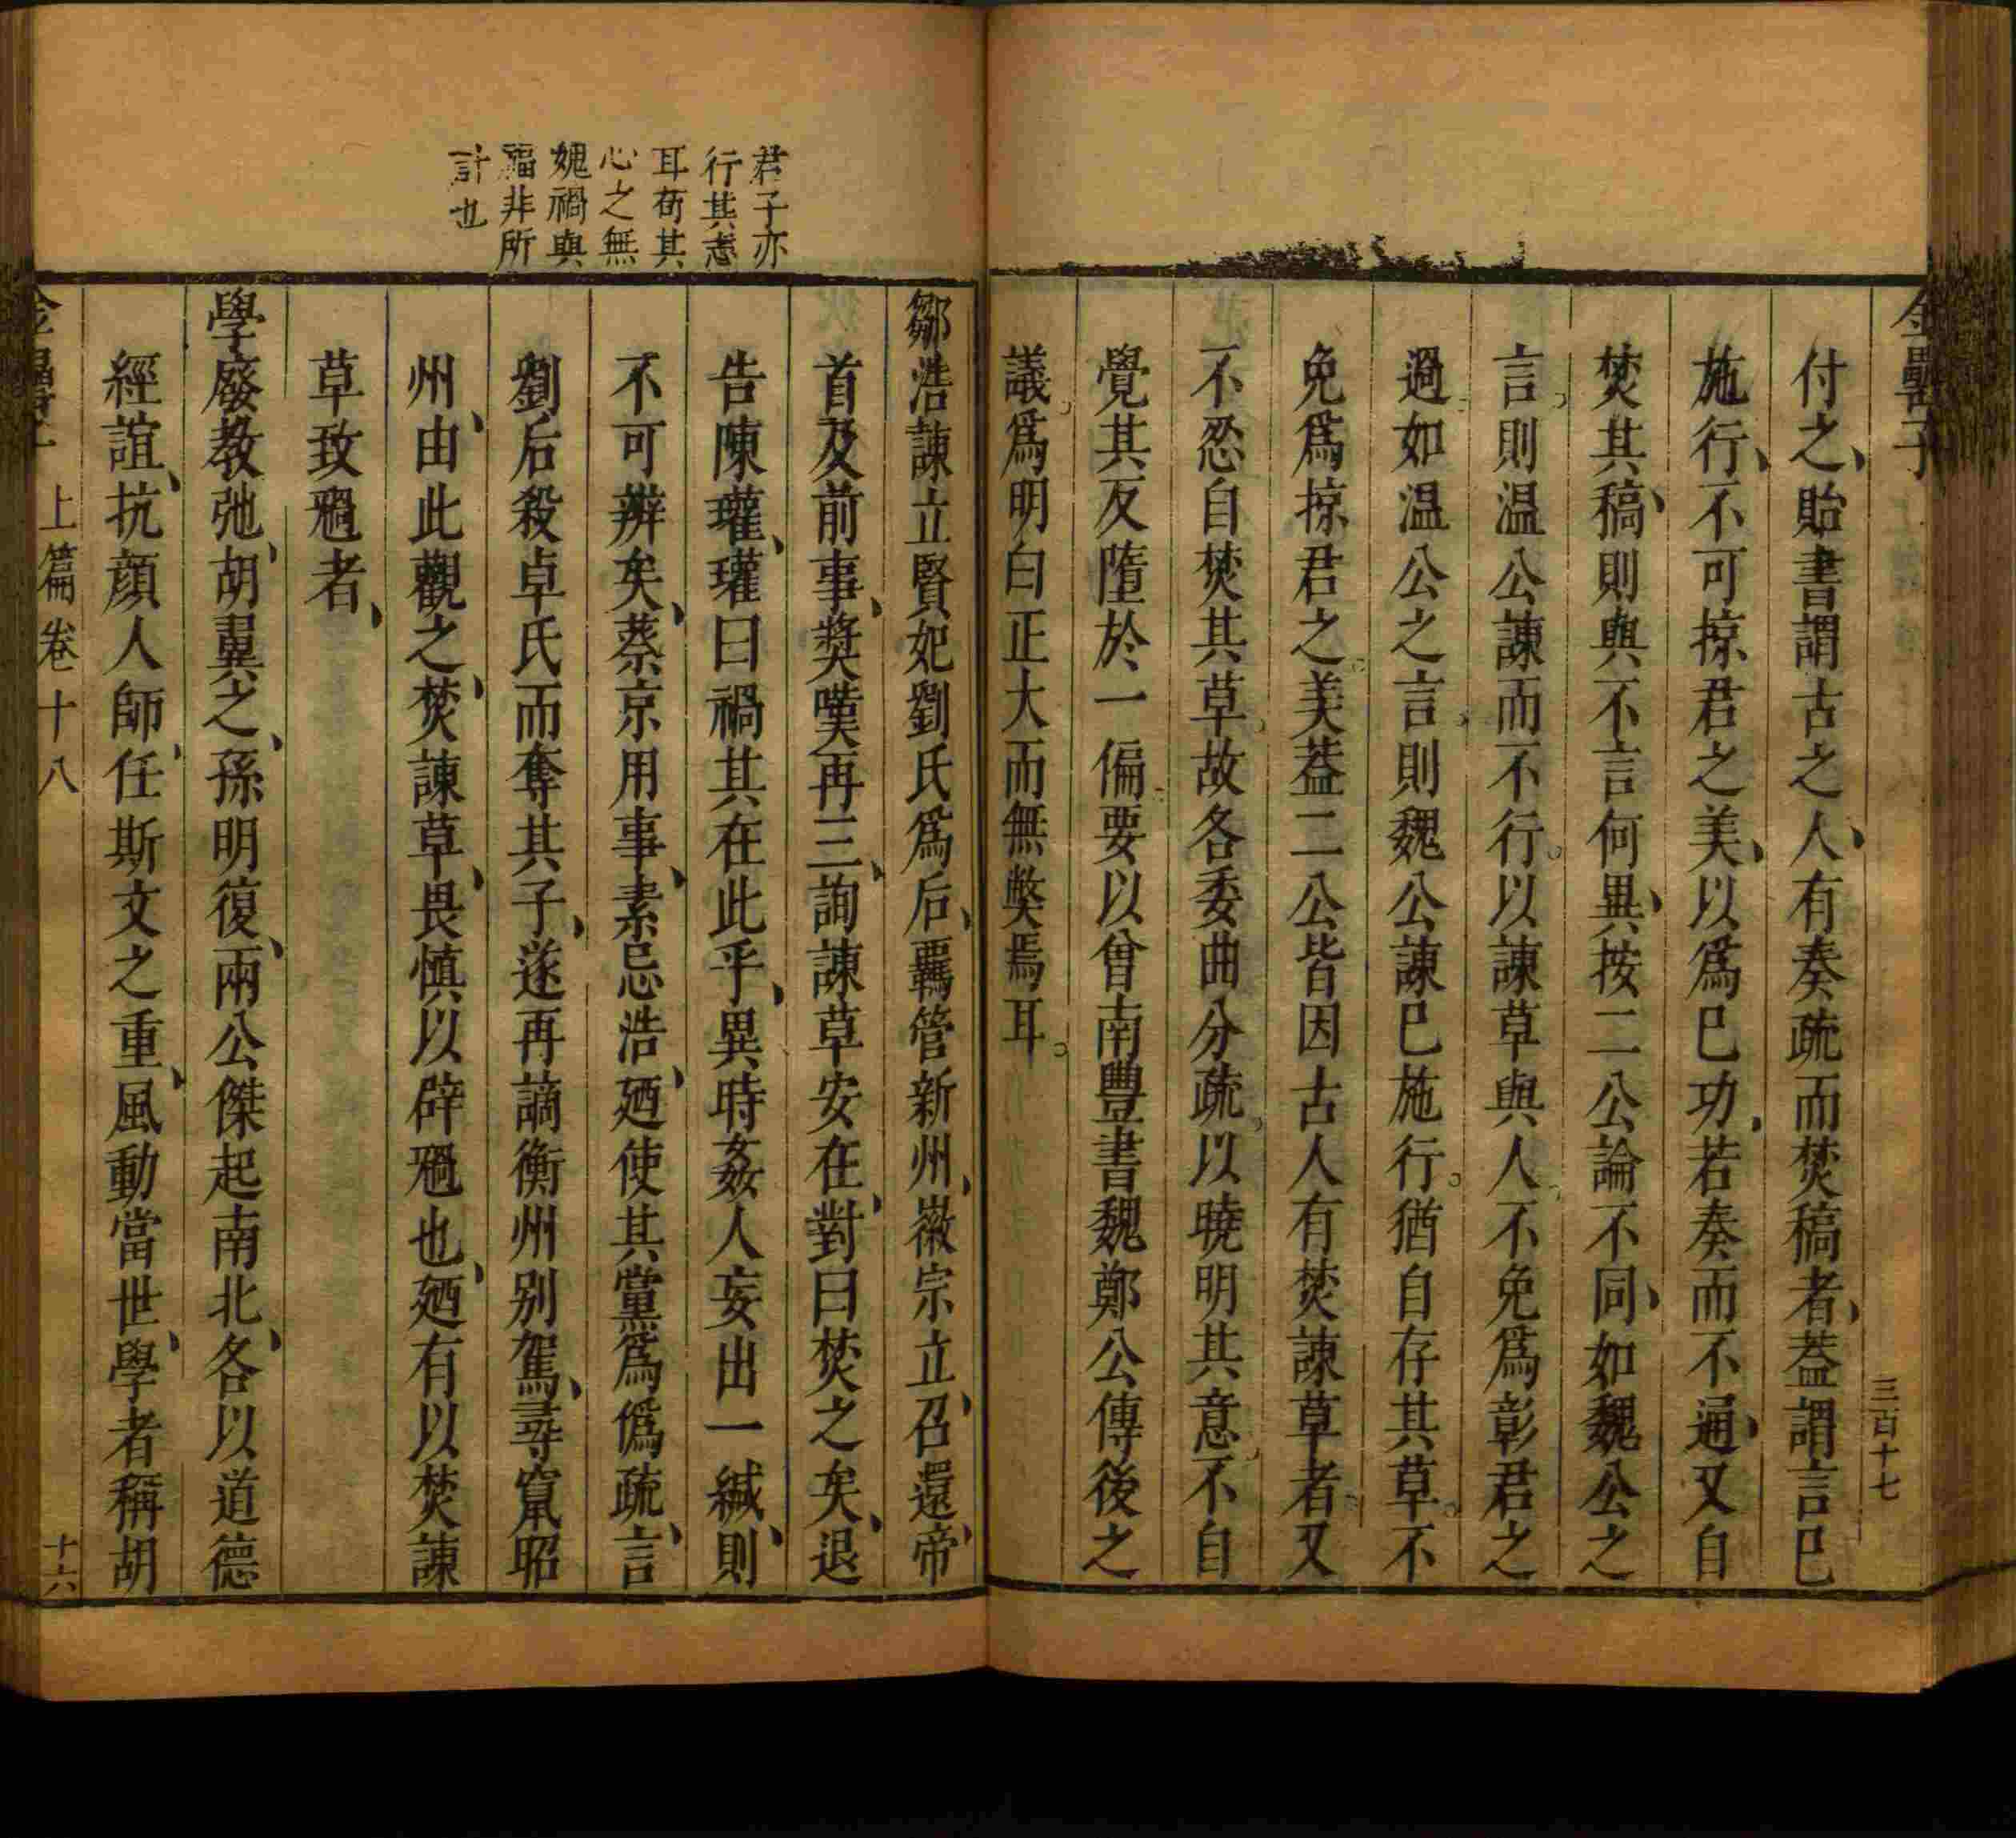 金罍子
三百十七
付之貽書謂古之人有奏疏而焚稿者葢謂言已
施行不可掠君之美以爲已功若奏而不通又自
焚其稿則與不言何異按二公論不同如魏公之
言則溫公諫而不行以諫草與人不免爲彰君之
過如溫公之言則魏公諫已施行猶自存其草不
免爲掠君之美葢二公皆因古人有焚諫草者又
不忍自焚其草故各委曲分疏以曉明其意不自
覺其反墮於一偏要以曾南豐書魏鄭公傳後之
議爲明白正大而無獘焉耳
君子亦
行其志
耳苟其
心之無
媿禍與
福非所
計也
鄒浩諫立賢妃劉氏爲后覊管新州徽宗立召還帝
首及前事奬嘆再三詢諫草安在對曰焚之矣退
告陳瓘瓘曰禍其在此乎異時姦人妄出一緘則
不可辨矣蔡京用事素忌浩廼使其黨爲僞疏言
劉后殺卓氏而奪其子遂再謫衡州别駕尋竄昭
州由此觀之焚諫草畏慎以辟禍也廼有以焚諫
草致禍者
學廢敎弛胡翼之孫明復兩公傑起南北各以道德
經誼抗顏人師任斯文之重風動當世學者稱胡
金罍子
上篇卷十八
十六